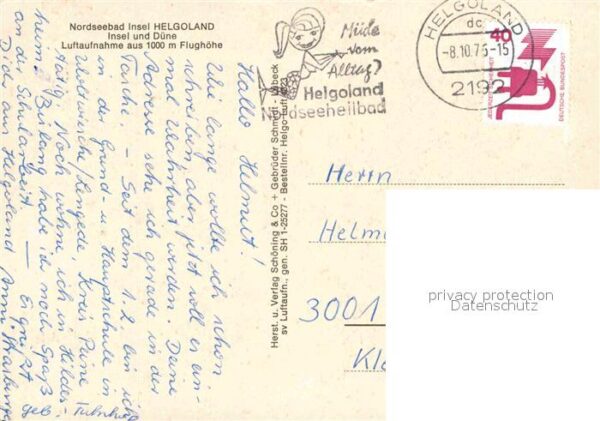 Nordseebad Insel HELGOLAND
Insel und Düne
Luftaufnahme aus 1000 m Flughöhe
Müde
vom
Alltag?
Helgoland
Nordseeheilbad
HELGOLAND
dc
-8.10.75-15
2192
40
JEDERZEIT SICHERHEIT
DEUTSCHE BUNDESPOST
Hallo Helmut!
Wie lange wollte ich schon
schreiben, aber jetzt soll es ein-
mal Wahrheit werden. Deine
Adresse sehe ich gerade in der
Tasche - Seit dem 1.2. bin ich
in der Grund- u. Hauptschule in
Woltwiesche/Lengede, Kreis Peine
tätig. Noch wohne ich in Hildes-
heim. Bislang habe ich noch Spaß
an der Schularbeit - Es grüßt
Dich aus Helgoland
geb.
Herst. u. Verlag Schöning & Co + Gebrüder Schmidt - Lübeck
sv Luftaufn., gen. SH 1-25277 - Bestellnr. Helgo-Luft
Herrn
Helm
3001
Kl
privacy protection
Datenschutz